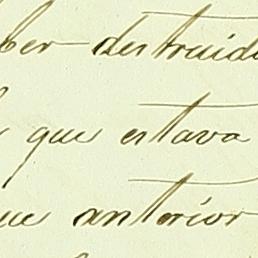 ber destruido
que estava
ue anterior